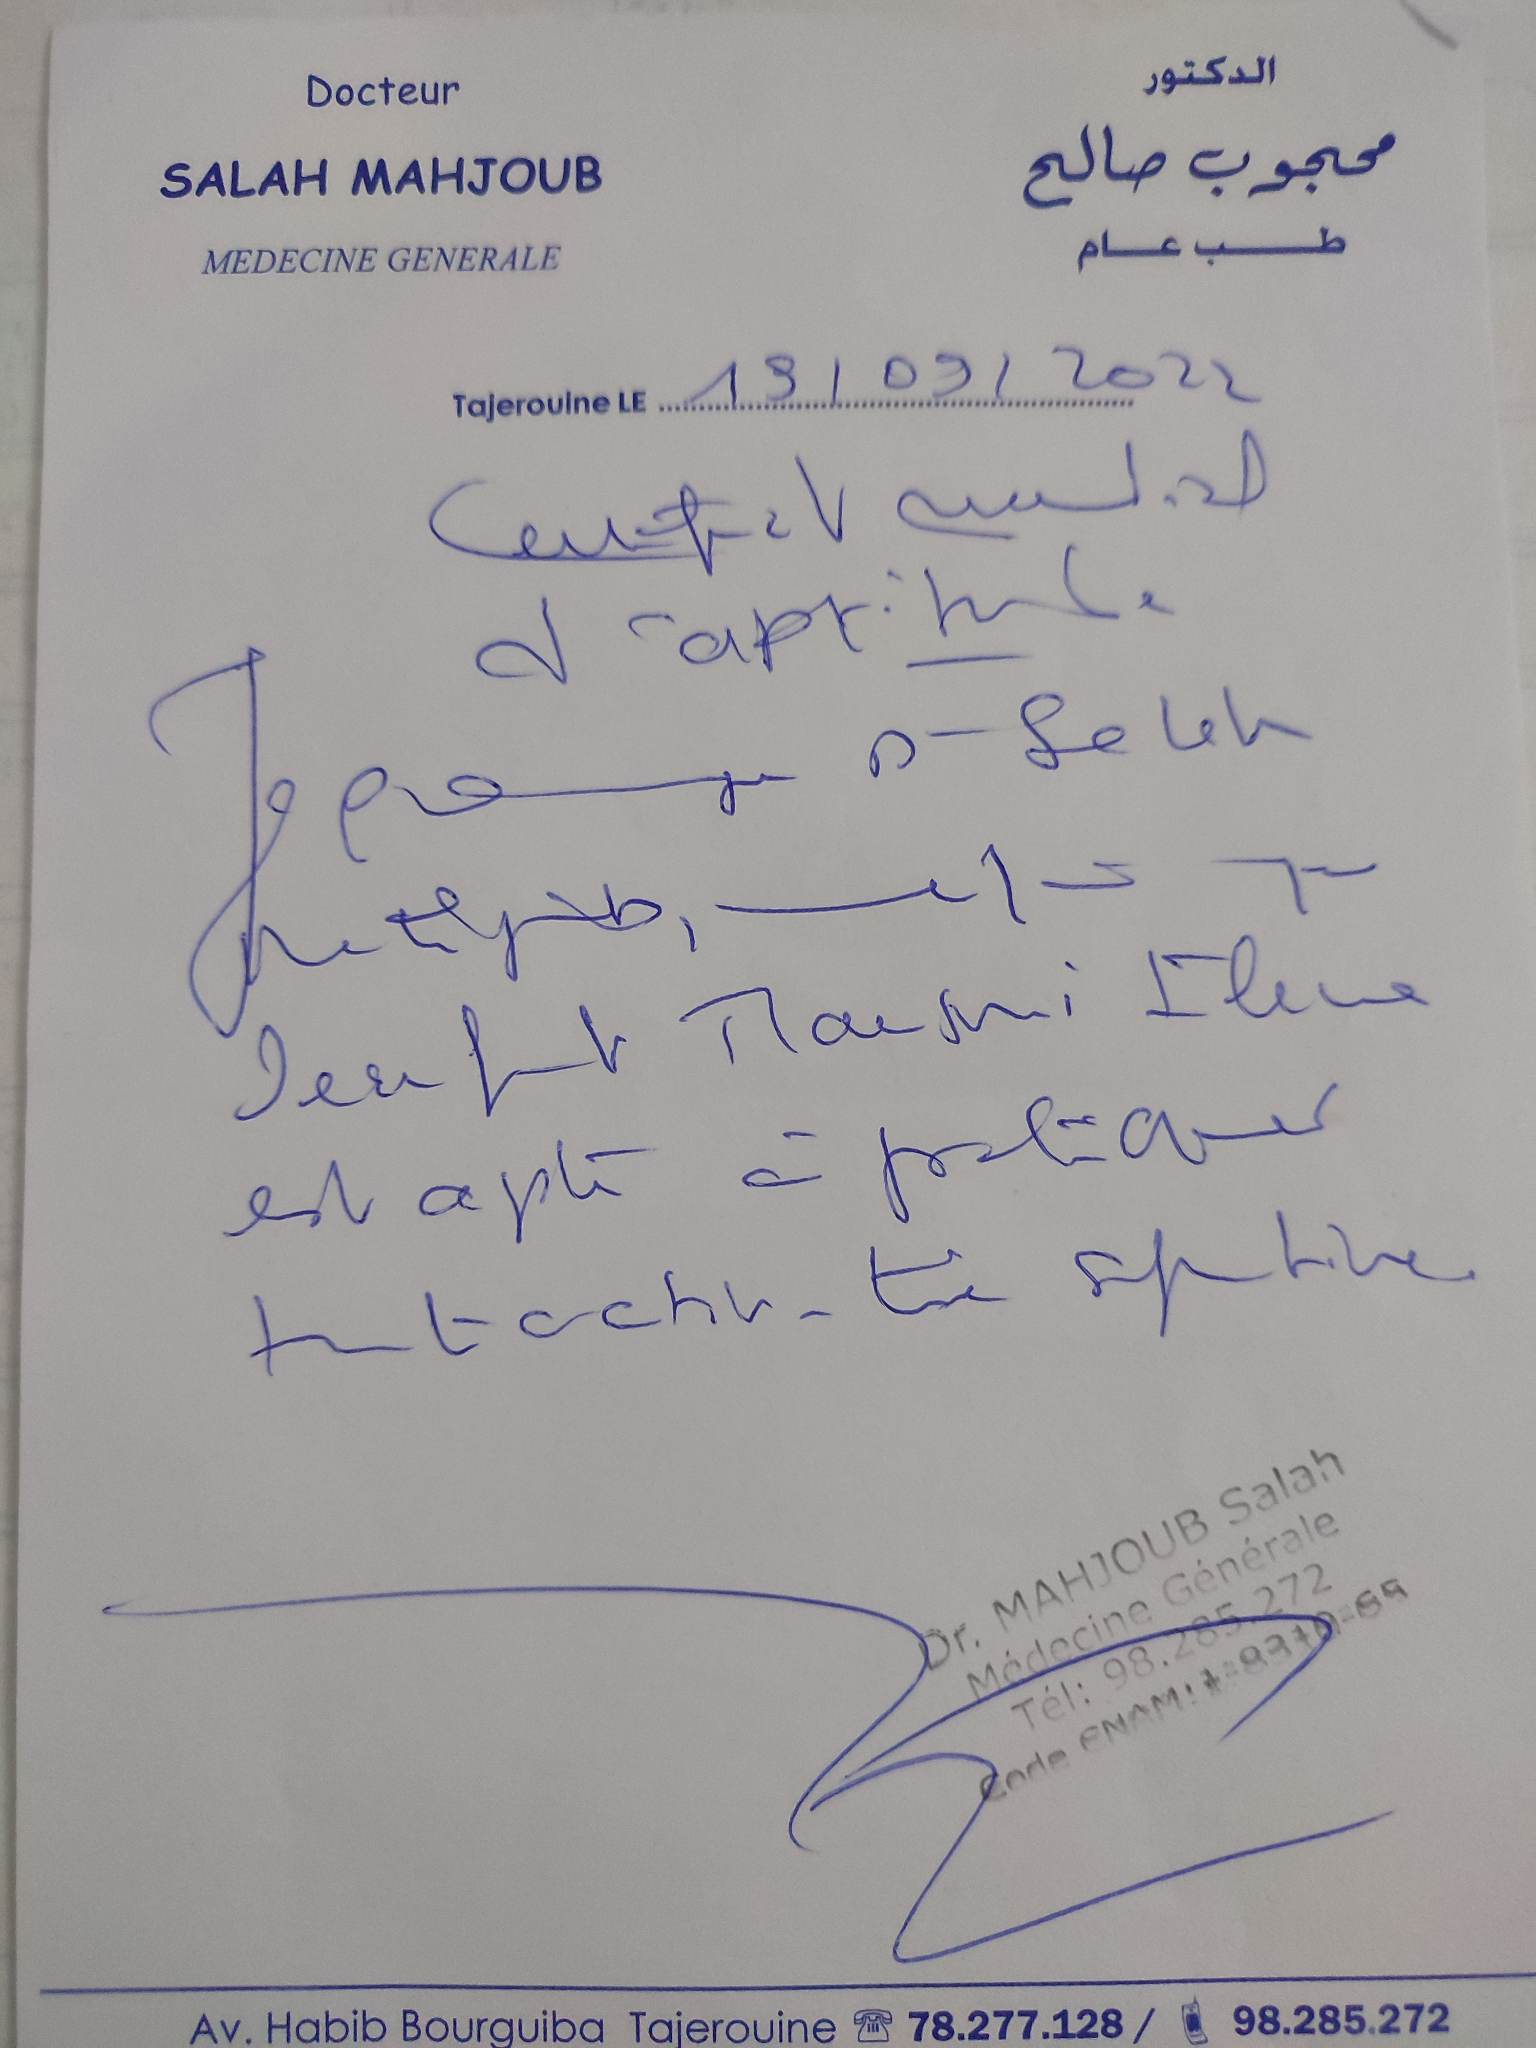 Docteur
SALAH MAHJOUB
MEDECINE GENERALE
الدكتور
محجوب صالح
طب عام
Tajerouine LE 19/09/2022
Certificat médical
d'aptitude
Je Dr Salah
Mahjoub, que
l'enfant
est apte à pratiquer
toute activité sportive.
Dr. MAHJOUB Salah
Médecine Générale
Tél: 98.285.272
Code CNAM:
Av. Habib Bourguiba Tajerouine 78.277.128 / 98.285.272